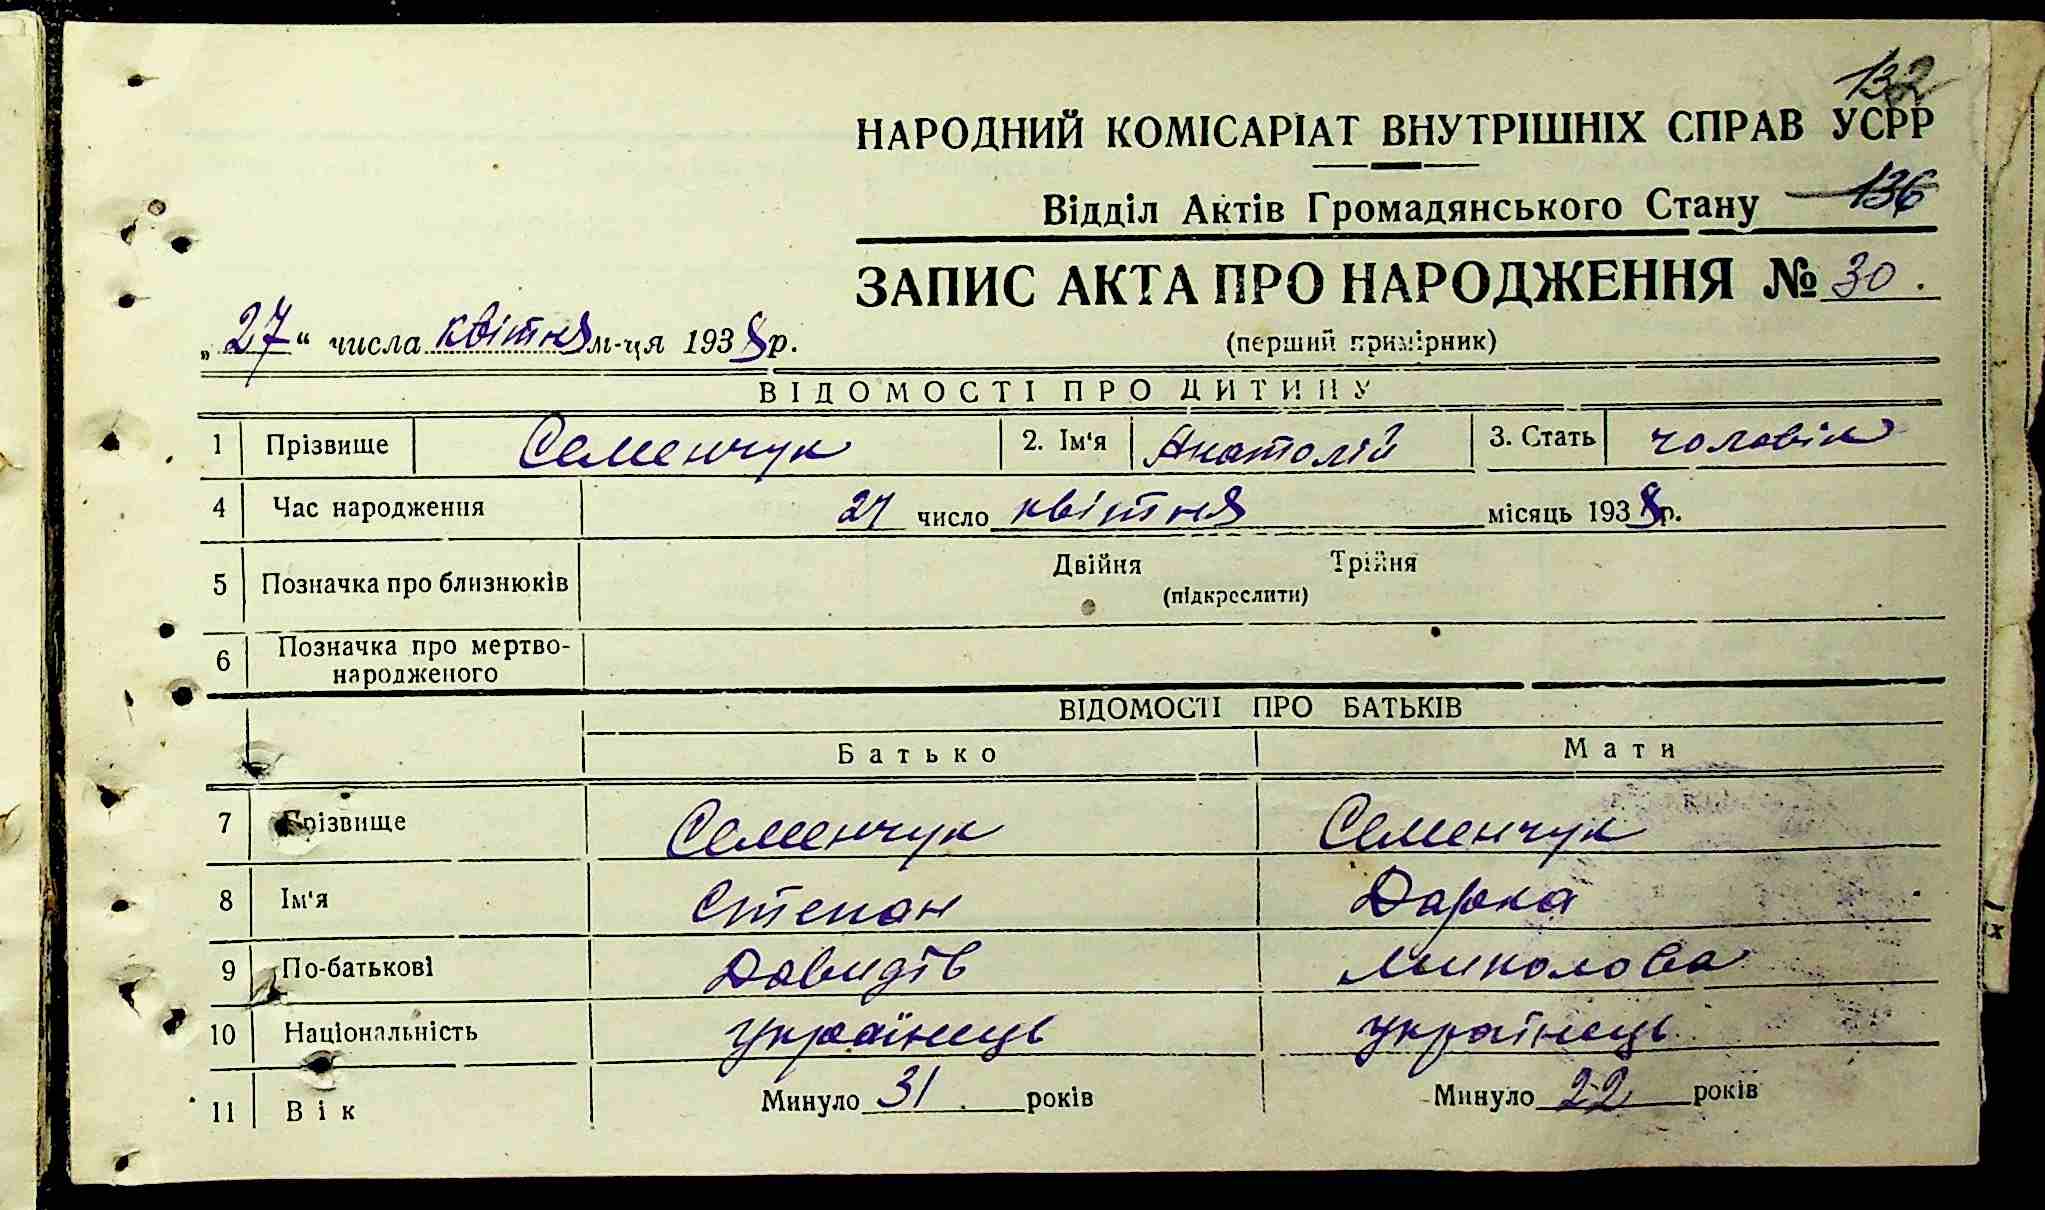 132
НАРОДНИЙ КОМІСАРІАТ ВНУТРІШНІХ СПРАВ УСРР
Відділ Актів Громадянського Стану 136
ЗАПИС АКТА ПРО НАРОДЖЕННЯ № 30.
„27“ числа квітня м-ця 1938 р.
(перший примірник)
ВІДОМОСТІ ПРО ДИТИНУ
1 Прізвище Семенчук 2. Ім'я Анатолій 3. Стать чоловік
4 Час народження 27 число квітня місяць 1938 р.
5 Позначка про близнюків Двійня Трійня
(підкреслити)
6 Позначка про мертво-
народженого
ВІДОМОСТІ ПРО БАТЬКІВ
Батько Мати
7 Прізвище Семенчук Семенчук
8 Ім'я Степан Дарка
9 По-батькові Давидів Миколова
10 Національність українець українець
11 Вік Минуло 31 років Минуло 22 років